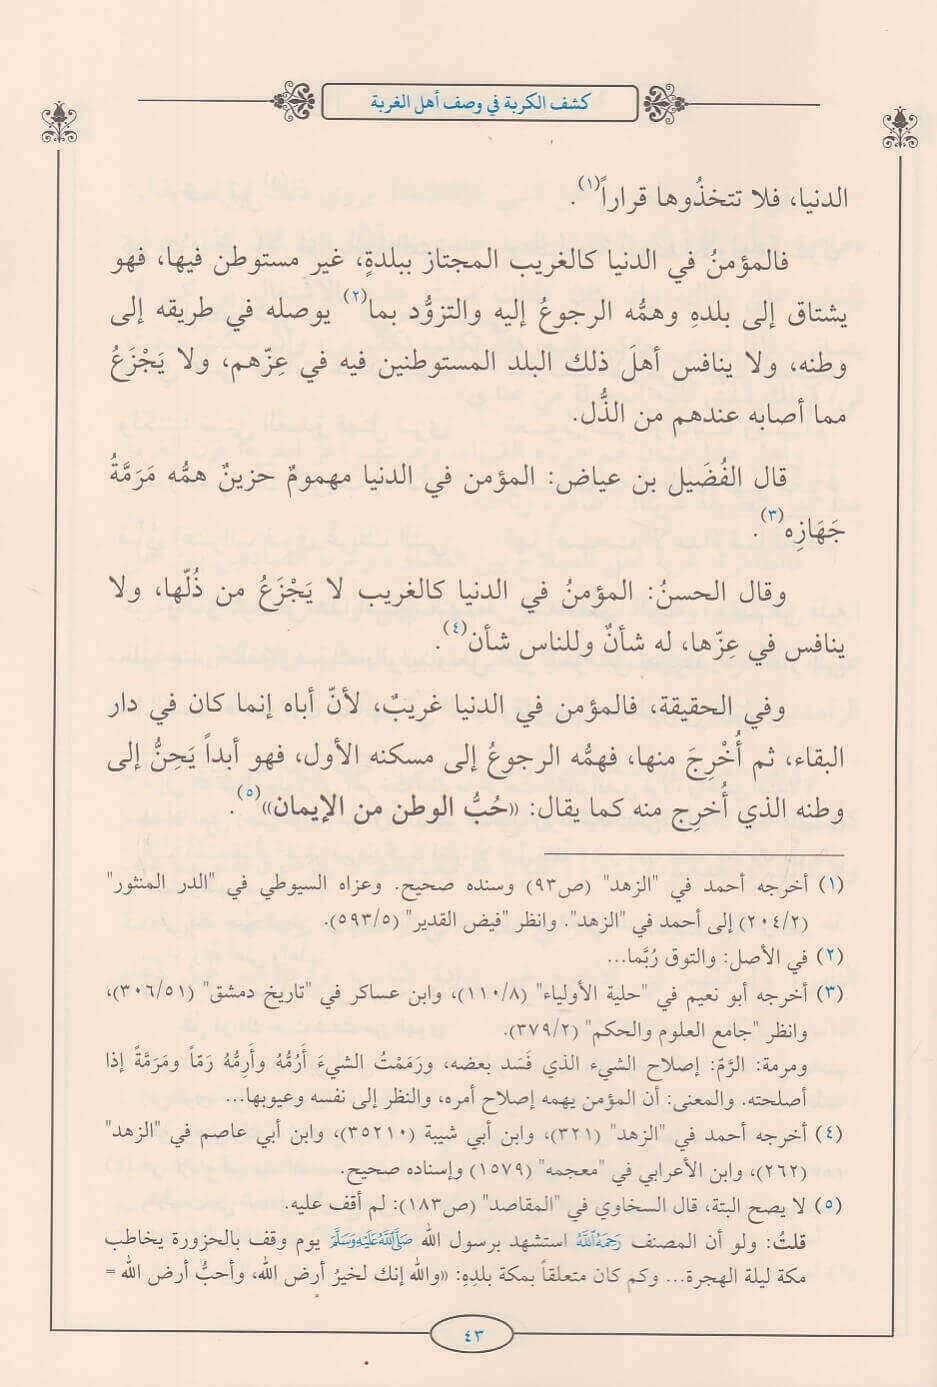 كشف الكربة في وصف أهل الغربة
الدنيا، فلا تتخذُوها قراراً(١).
فالمؤمنُ في الدنيا كالغريب المجتاز ببلدةٍ، غير مستوطن فيها، فهو
يشتاق إلى بلدهِ وهمُّه الرجوعُ إليه والتزوُّد بما(٢) يوصله في طريقه إلى
وطنه، ولا ينافس أهلَ ذلك البلد المستوطنين فيه في عِزّهم، ولا يَجْزَعُ
مما أصابه عندهم من الذُّل.
قال الفُضَيل بن عياض: المؤمن في الدنيا مهمومٌ حزينٌ همُّه مَرَمَّةُ
جَهَازِه(٣).
وقال الحسنُ: المؤمنُ في الدنيا كالغريب لا يَجْزَعُ من ذُلّها، ولا
ينافس في عِزّها، له شأنٌ وللناس شأن(٤).
وفي الحقيقة، فالمؤمن في الدنيا غريبٌ، لأنّ أباه إنما كان في دار
البقاء، ثم أُخْرِجَ منها، فهمُّه الرجوعُ إلى مسكنه الأول، فهو أبداً يَحِنُّ إلى
وطنه الذي أُخرِج منه كما يقال: «حُبُّ الوطن من الإيمان»(٥).
(١) أخرجه أحمد في "الزهد" (ص٩٣) وسنده صحيح. وعزاه السيوطي في "الدر المنثور"
(٢٠٤/٢) إلى أحمد في "الزهد". وانظر "فيض القدير" (٥٩٣/٥).
(٢) في الأصل: والتوق رُبَّما...
(٣) أخرجه أبو نعيم في "حلية الأولياء" (١١٠/٨)، وابن عساكر في "تاريخ دمشق" (٣٠٦/٥١)،
وانظر "جامع العلوم والحكم" (٣٧٩/٢).
ومرمة: الرَّمّ: إصلاح الشيء الذي فَسَد بعضه، ورَمَمْتُ الشيءَ أَرُمُّهُ وأَرِمُّهُ رَمّاً ومَرَمَّةً إذا
أصلحته. والمعنى: أن المؤمن يهمه إصلاح أمره، والنظر إلى نفسه وعيوبها...
(٤) أخرجه أحمد في "الزهد" (٣٢١)، وابن أبي شيبة (٣٥٢١٠)، وابن أبي عاصم في "الزهد"
(٢٦٢)، وابن الأعرابي في "معجمه" (١٥٧٩) وإسناده صحيح.
(٥) لا يصح البتة، قال السخاوي في "المقاصد" (ص١٨٣): لم أقف عليه.
قلتُ: ولو أن المصنف رَحِمَهُ اللَّهُ استشهد برسول الله صَلَّى اللَّهُ عَلَيْهِ وَسَلَّمَ يوم وقف بالحزورة يخاطب
مكة ليلة الهجرة... وكم كان متعلقاً بمكة بلدِهِ: «والله إنك لخيرُ أرض الله، وأحبُّ أرض الله =
٤٣